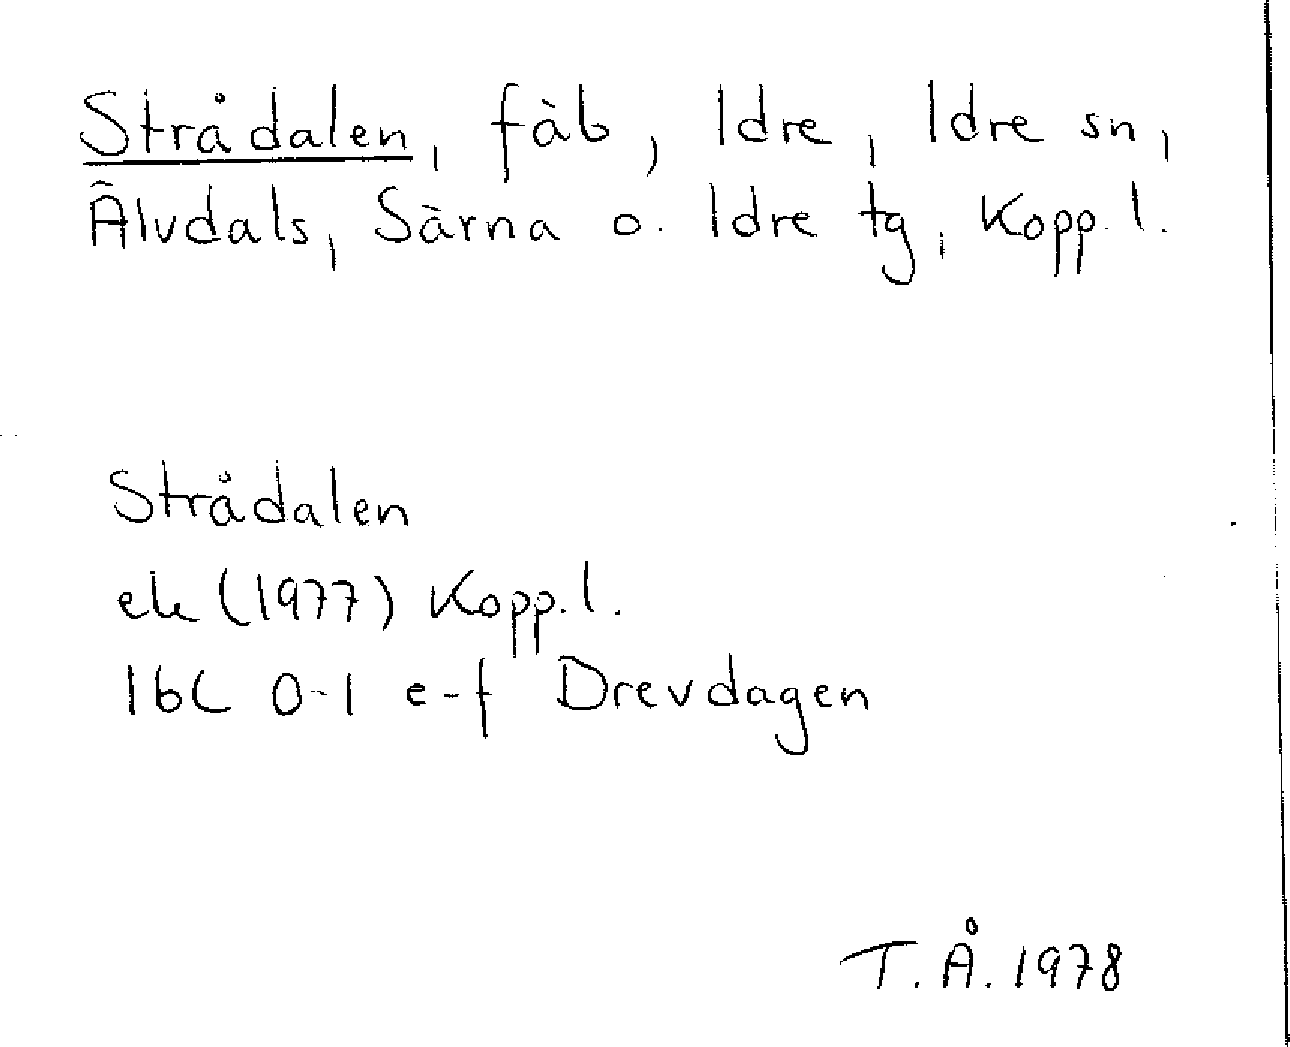 Strådalen, fäb, Idre, Idre sn,
Älvdals, Särna o. Idre tg, Kopp. l.
Strådalen
ek (1977) Kopp. l.
16C 0-1 e-f Drevdagen
T.Å. 1978